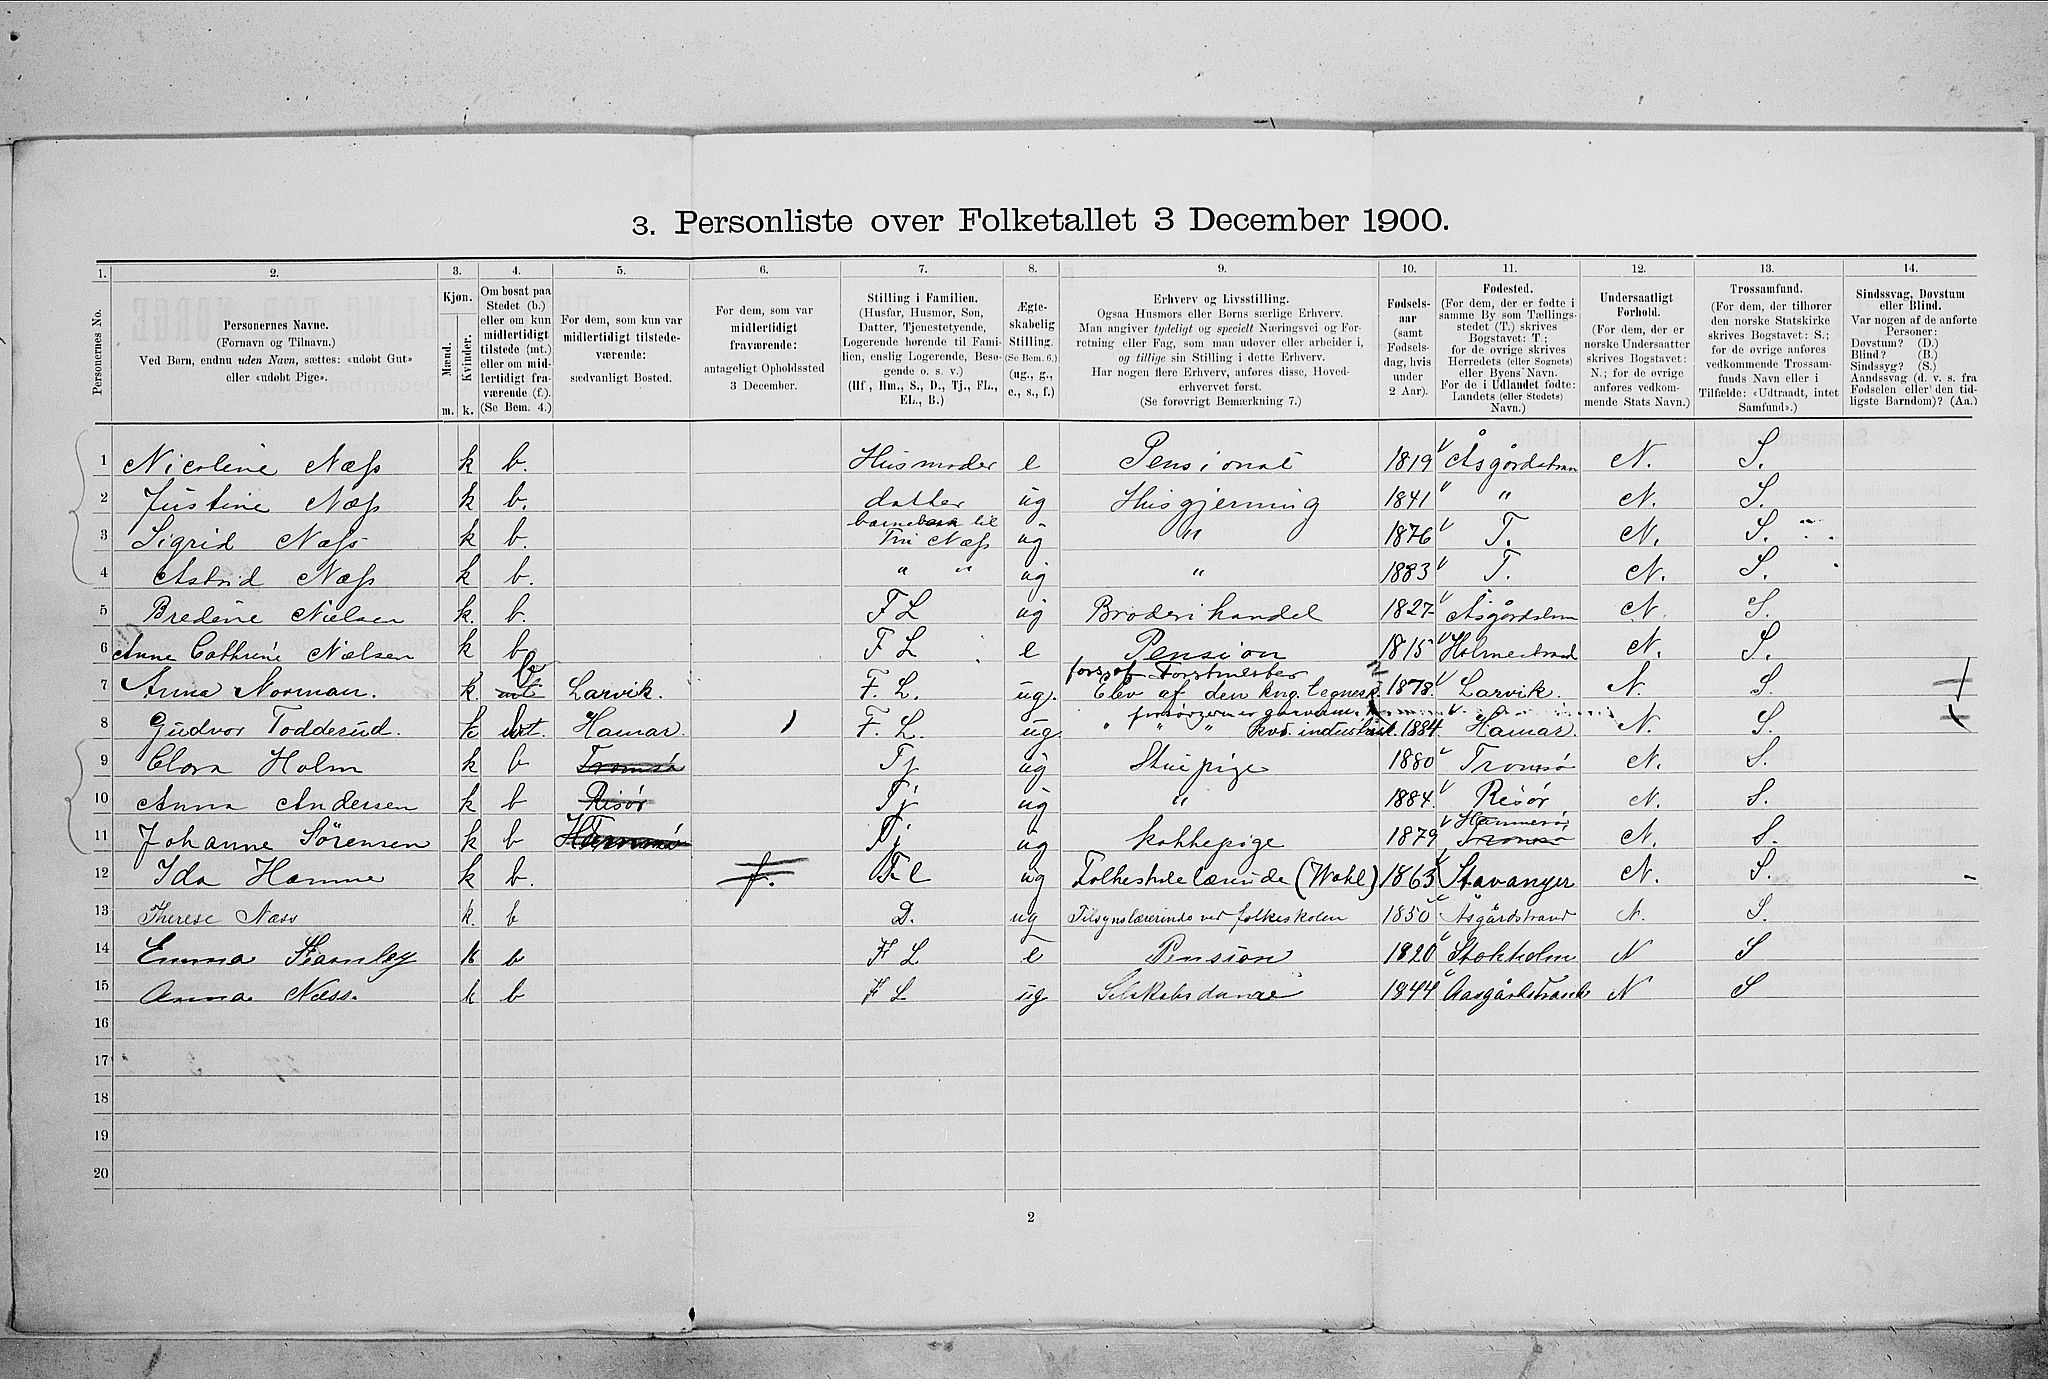 3. Personliste over Folketallet 3 December 1900.
1. 2. 3. 4. 5. 6. 7. 8. 9. 10. 11. 12. 13. 14.
Personernes No.
Personernes Navne.
(Fornavn og Tilnavn.)
Ved Børn, endnu uden Navn, sættes: «udøbt Gut»
eller «udøbt Pige».
Kjøn.
Mænd.
Kvinder.
m. k.
Om bosat paa
Stedet (b.)
eller om kun
midlertidigt
tilstede (mt.)
eller om mid-
lertidigt fra-
værende (f.).
(Se Bem. 4.)
For dem, som kun var
midlertidigt tilstede-
værende:
sædvanligt Bosted.
For dem, som var
midlertidigt
fraværende:
antageligt Opholdssted
3 December.
Stilling i Familien.
(Husfar, Husmor, Søn,
Datter, Tjenestetyende,
Logerende hørende til Fami-
lien, enslig Logerende, Besø-
gende o. s. v.)
(Hf, Hm., S., D., Tj., FL.,
EL., B.)
Ægte-
skabelig
Stilling.
(Se Bem. 6.)
(ug., g.,
e., s., f.)
Erhverv og Livsstilling.
Ogsaa Husmors eller Børns særlige Erhverv.
Man angiver tydeligt og specielt Næringsvei og For-
retning eller Fag, som man udøver eller arbeider i,
og tillige sin Stilling i dette Erhverv.
Har nogen flere Erhverv, anføres disse, Hoved-
erhvervet først.
(Se forøvrigt Bemærkning 7.)
Fødsels-
aar
(samt
Fødsels-
dag, hvis
under
2 Aar).
Fødested.
(For dem, der er fødte i
samme By som Tællings-
stedet (T.) skrives
Bogstavet: T.;
for de øvrige skrives
Herredets (eller Sognets)
eller Byens Navn.
For de i Udlandet fødte:
Landets (eller Stedets)
Navn.)
Undersaatligt
Forhold.
(For dem, der er
norske Undersaatter
skrives Bogstavet:
N.; for de øvrige
anføres vedkom-
mende Stats Navn.)
Trossamfund.
(For dem, der tilhører
den norske Statskirke
skrives Bogstavet: S.;
for de øvrige anføres
vedkommende Trossam-
funds Navn eller i
Tilfælde: «Udtraadt, intet
Samfund».)
Sindssvag, Døvstum
eller Blind.
Var nogen af de anførte
Personer:
Døvstum? (D.)
Blind? (B.)
Sindssyg? (S.)
Aandssvag (d. v. s. fra
Fødselen eller den tid-
ligste Barndom)? (Aa.)
1 Nicoline Næss k b. Husmoder e Pensionat 1819 Åsgårdstran N. S.
2 Justine Næss k b. datter ug Husgjerning 1841 " N. S.
3 Sigrid Næss k b. barnebarn til Fru Næss ug " 1876 T. N. S.
4 Astrid Næss k b. " " ug " 1883 T. N. S.
5 Bredine Nielsen k. b. F L ug Broderihandel 1827 Åsgårdstran N. S.
6 Anne Cathrine Nielsen k b F L e Pension 1815 Holmestrand N. S.
fors. af Forstmester
7 Anna Norman. k. mt b Larvik. F. L. ug. Elev af den kng. tegnesk. 1878. Larvik. N. S.
8 Gudvor Todderud. k mt. Hamar. F. L. ug. " " " kvd. industrisk. 1884. Hamar. N. S.
9 Clara Holm k b Tromsø Tj ug Stuepige 1880 Tromsø N. S.
10 Anna Andersen k b Risør Tj ug " 1884. Risør N. S.
11 Johanne Sörensen k b Tj ug kokkepige 1879 Tromsø N. S.
12 Ida Hamme k b. f. F. l ug Folkeskolelærerinde (Wahl) 1863 Stavanger N. S.
13 Therese Næss k. b D. ug Tilsynslærerinde ved folkeskolen 1850 Åsgårdstrand N. S.
14 Emma k b F L e Pension 1820 Stokholm N S
15 Anna Næss. k b F L ug Selskabsdame 1844 Aasgårdstrand N S
16
17
18
19
20
2